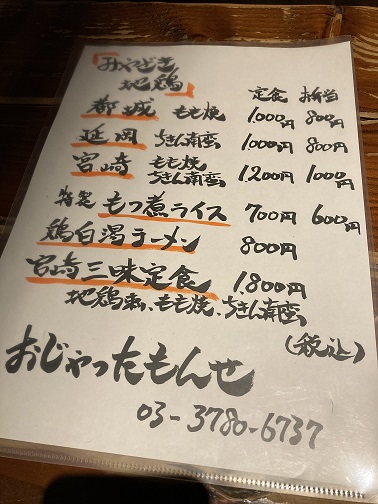 「みやざき
地鶏」
定食 お弁当
都城 もも焼 1000円 800円
延岡 ちきん南蛮 1000円 800円
宮崎 もも焼 ちきん南蛮 1200円 1000円
特製 もつ煮ライス 700円 600円
鶏白湯ラーメン 800円
宮崎三味定食 1800円
もも焼、ちきん南蛮
(税込)
おじゃったもんせ
03-3780-6737